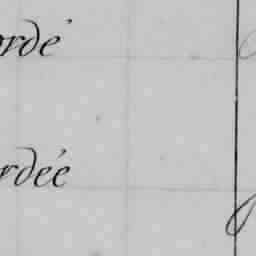 ordé
rdée